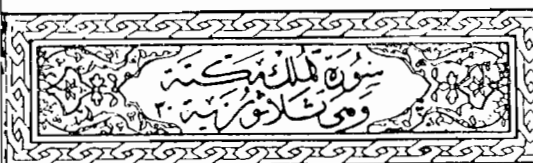 سُورَةُ الْمُلْكِ مَكِّيَّة
وَهِيَ ثَلَاثُونَ آيَة ٣٠